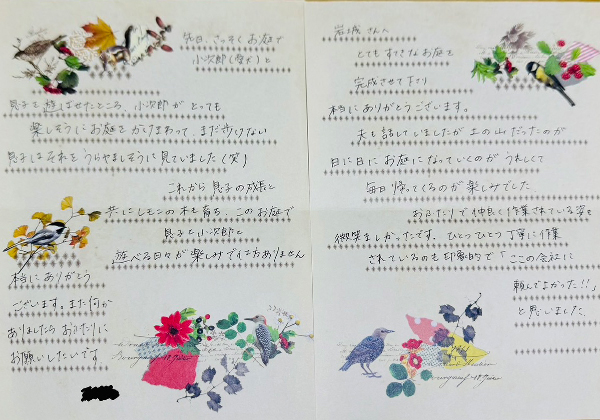 岩城さんへ
とてもすてきなお庭を
完成させて下さり
本当にありがとうございます。
夫も話していましたが土の山だったのが
日に日にお庭になっていくのがうれしくて
毎日帰ってくるのが楽しみでした。
お二人で仲良く作業されている姿も
微笑ましかったです。ひとつひとつ丁寧に作業
されているのも印象的で「ここの会社に
頼んでよかった!!」
と思いました。
先日、さっそくお庭で
小次郎(愛犬)と
息子を遊ばせたところ、小次郎がとっても
楽しそうにお庭をかけまわって、まだ歩けない
息子はそれをうらやましそうに見ていました(笑)
これから息子の成長と
共にレモンの木も育ち、このお庭で
息子と小次郎と
遊べる日々が楽しみで仕方ありません
本当にありがとう
ございます。また何か
ありましたらお二人に
お願いしたいです